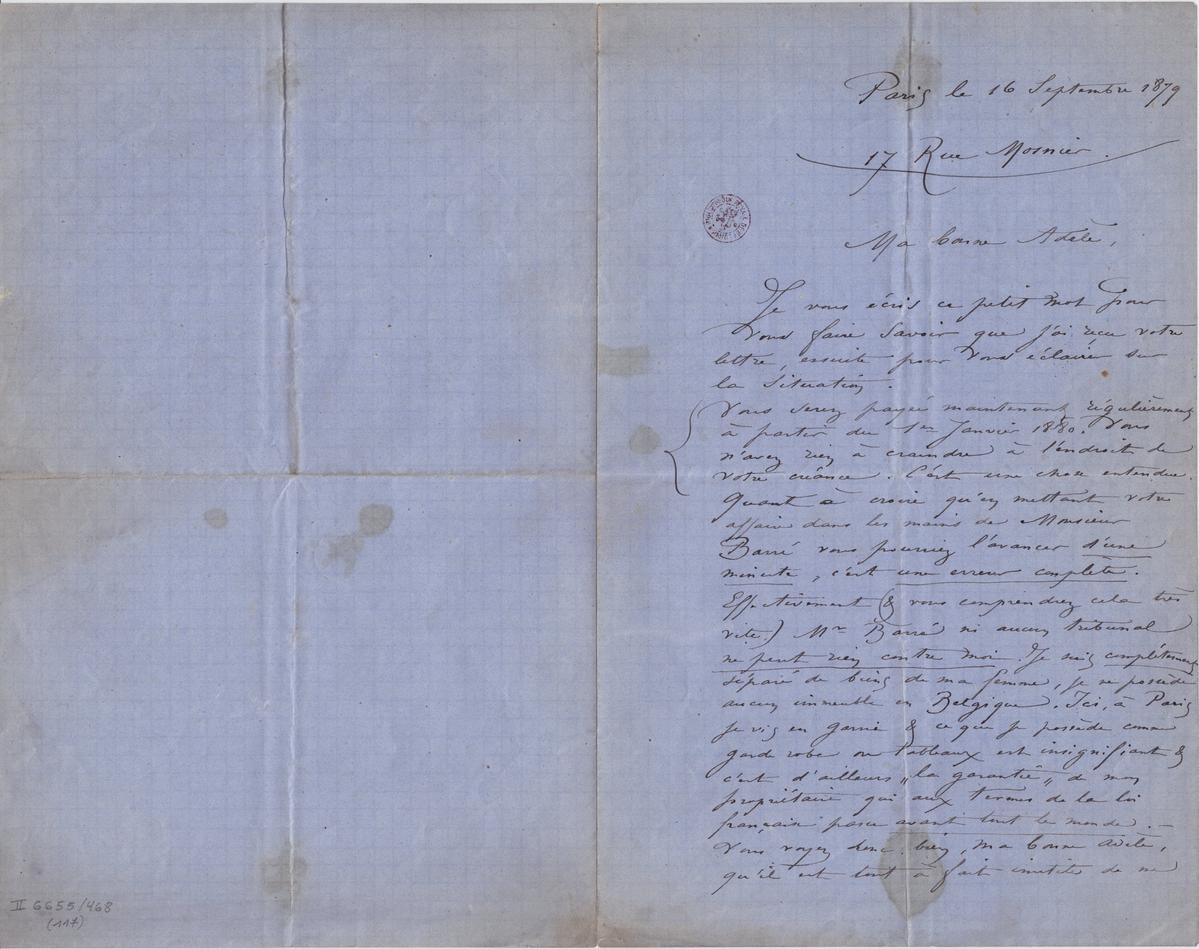 Paris le 16 Septembre 1879
17 Rue Mosnier.
Ma bonne Adèle,
Je vous écris ce petit mot pour
vous faire savoir que j'ai reçu votre
lettre, ensuite pour vous éclairer sur
la situation.
Vous serez payée maintenant régulièrement
à partir du 1er Janvier 1880. Vous
n'avez rien à craindre à l'endroit de
votre créance. C'est une chose entendue.
Quant à croire qu'en mettant votre
affaire dans les mains de Monsieur
Barré vous pourriez l'avancer d'une
minute, c'est une erreur complète.
Effectivement (& vous comprendrez cela très
vite.) Mr Barré ni aucun tribunal
ne peut rien contre moi. Je suis complètement
séparé de biens de ma femme, je ne possède
aucun immeuble en Belgique. Ici, à Paris
je vis en garni & ce que je possède comme
garde robe ou tableaux est insignifiant &
c'est d'ailleurs „la garantie„ de mon
propriétaire qui aux termes de la loi
française passe avant tout le monde. —
Vous voyez donc bien, ma bonne Adèle,
qu'il est tout à fait inutile de me
II 6655/468
(117)